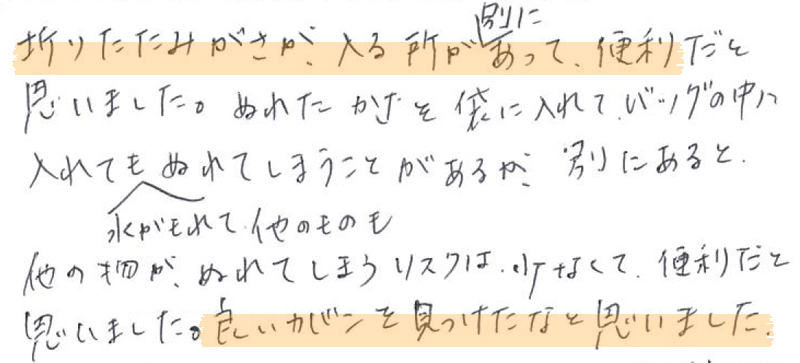 別に
折りたたみがさが、入る所があって、便利だと
思いました。ぬれたかさを袋に入れて、バッグの中に
入れてもぬれてしまうことがあるが、別にあると、
水がもれて、他のものも
他の物が、ぬれてしまうリスクは、少なくて、便利だと
思いました。良いカバンを見つけたなと思いました。